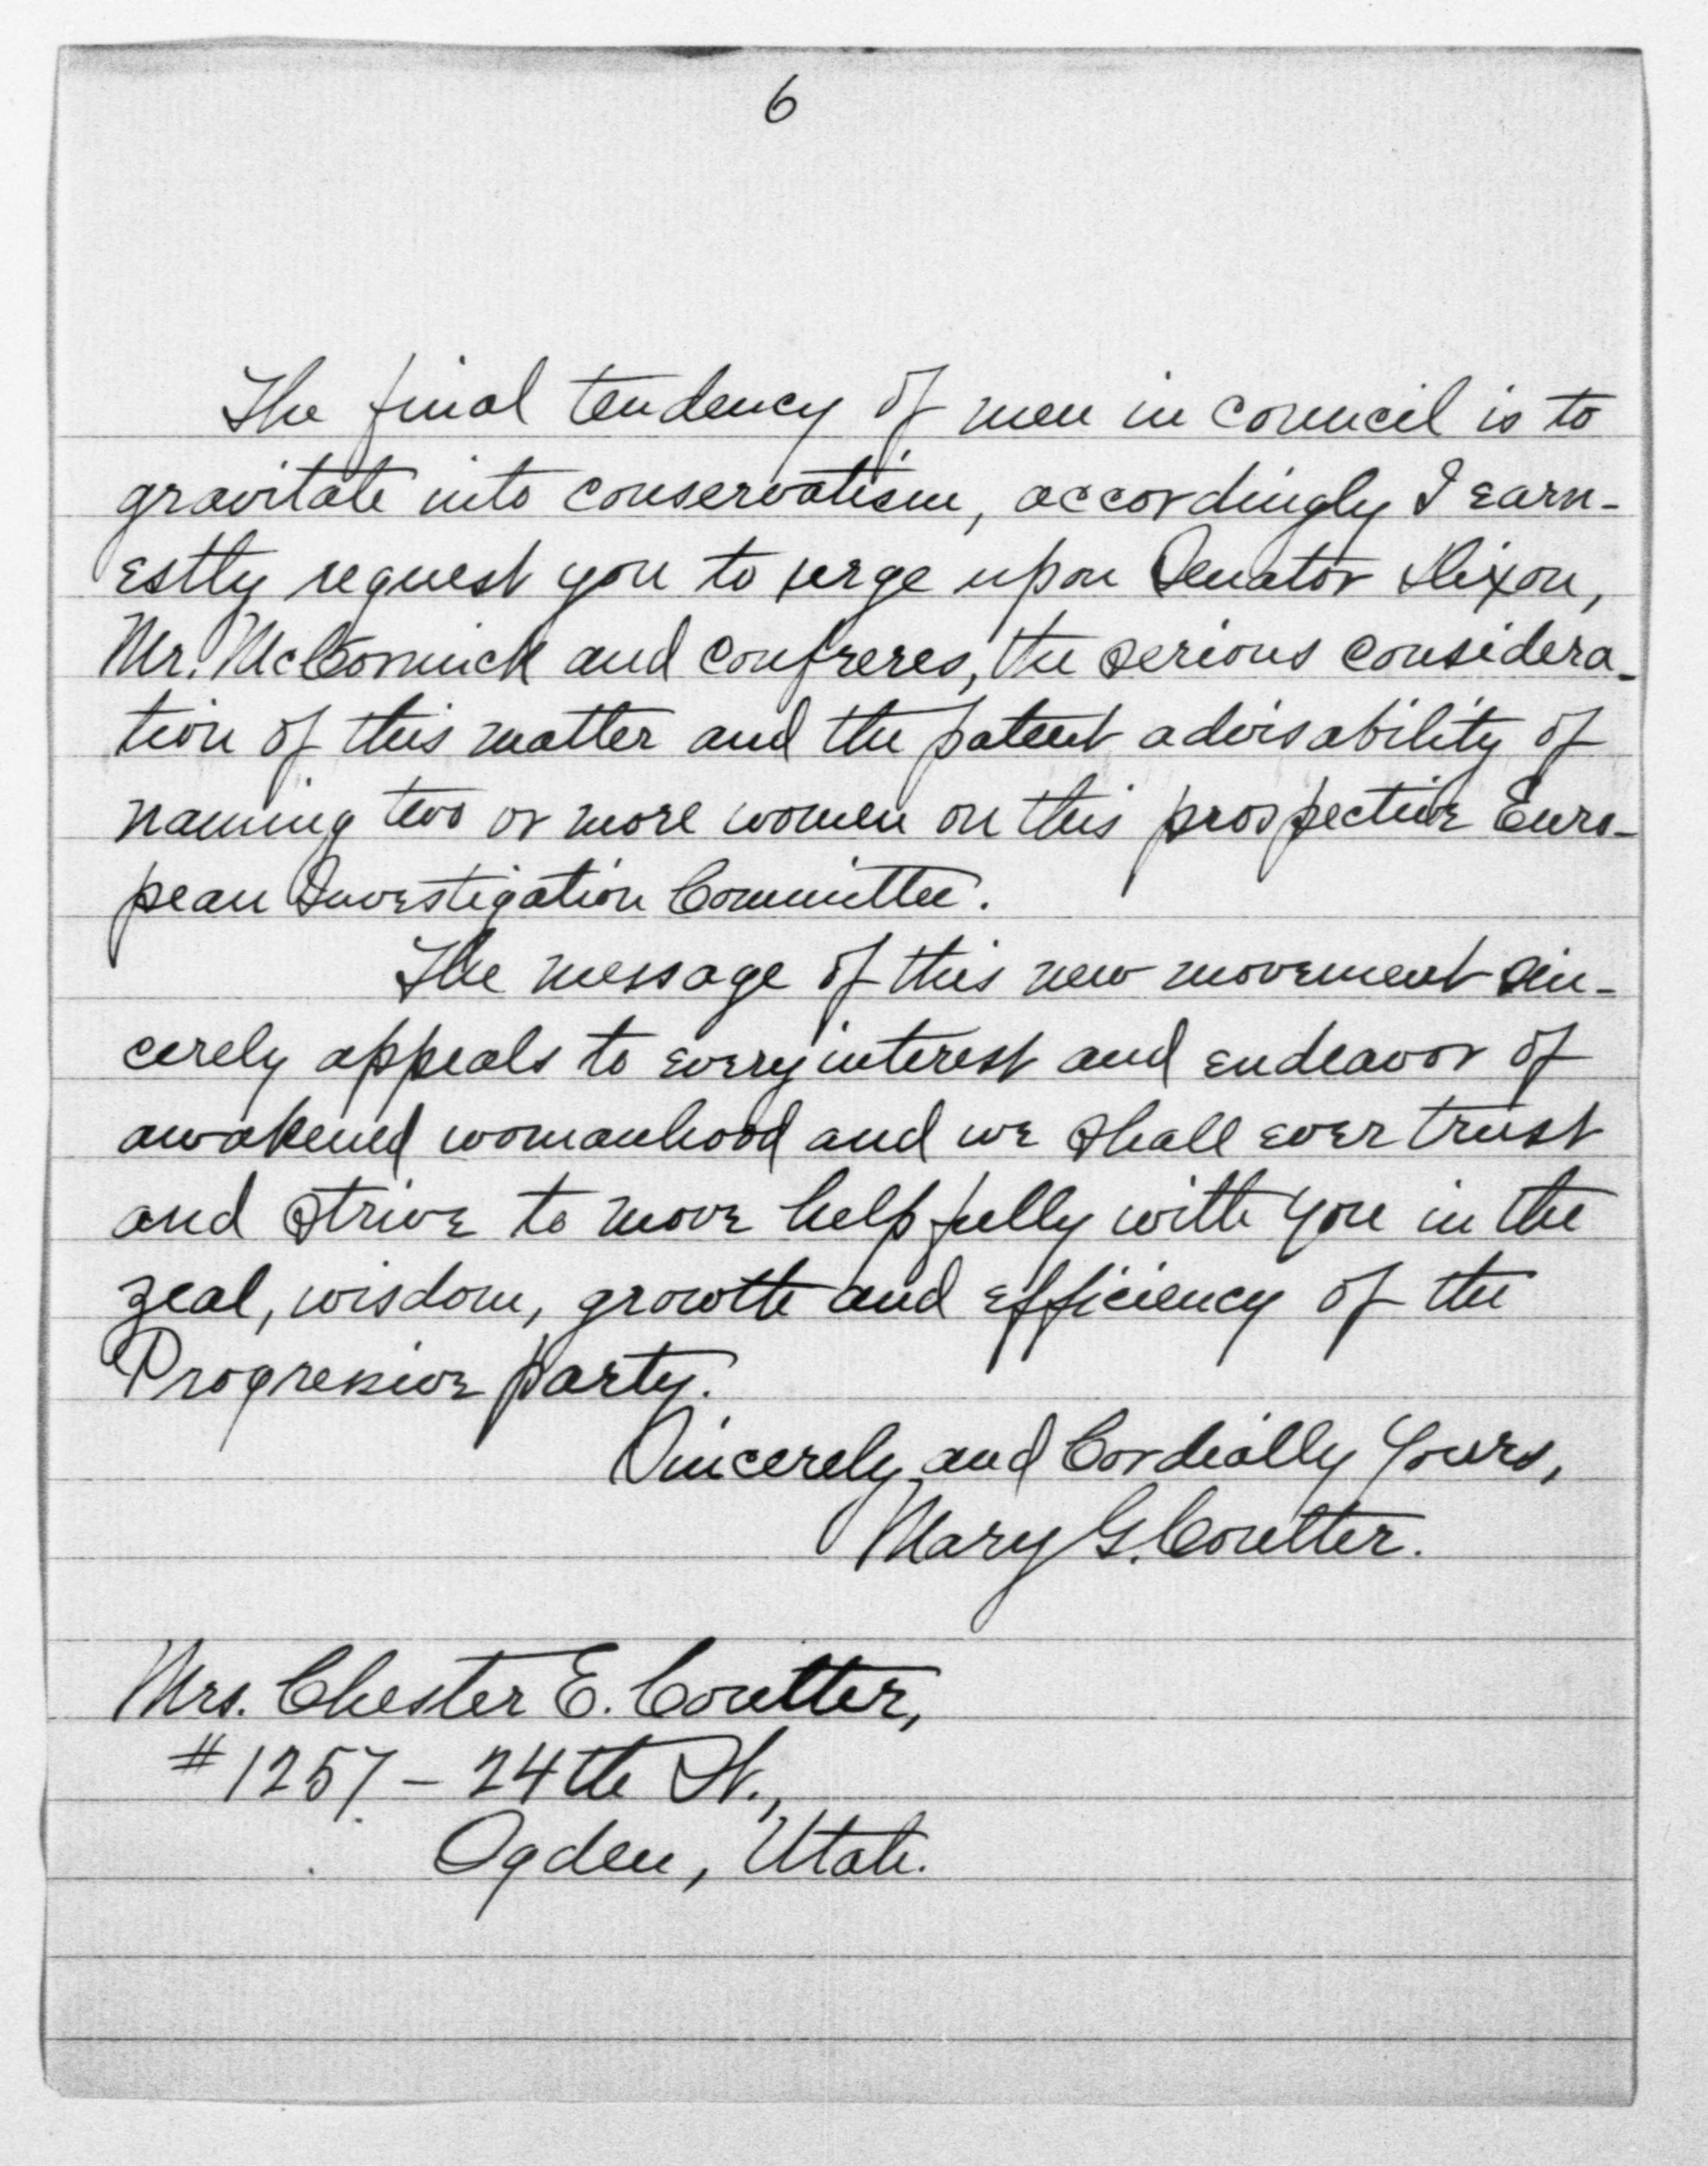 6
The final tendency of men in council is to
gravitate into conservatism, accordingly I earn-
estly request you to urge upon Senator Dixon,
Mr. McCormick and confreres, the serious considera-
tion of this matter and the patent advisability of
naming two or more women on this prospective Euro-
pean Investigation Committee.
The message of this new movement sin-
cerely appeals to every interest and endeavor of
awakened womanhood and we shall ever trust
and strive to move helpfully with you in the
zeal, wisdom, growth and efficiency of the
Progressive party.
Sincerely and Cordially Yours,
Mary G. Coulter.
Mrs. Chester E. Coulter,
#1257 - 24th St.,
Ogden, Utah.